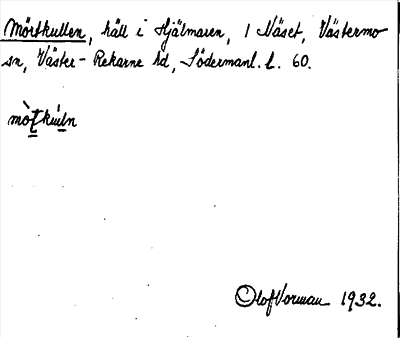 Mörtkullen, häll i Hjälmaren, 1 Näset, Västermo
sn, Väster-Rekarne hd, Södermanl. l. 60.
mòt̲kúl̲n
Olof Vorman 1932.